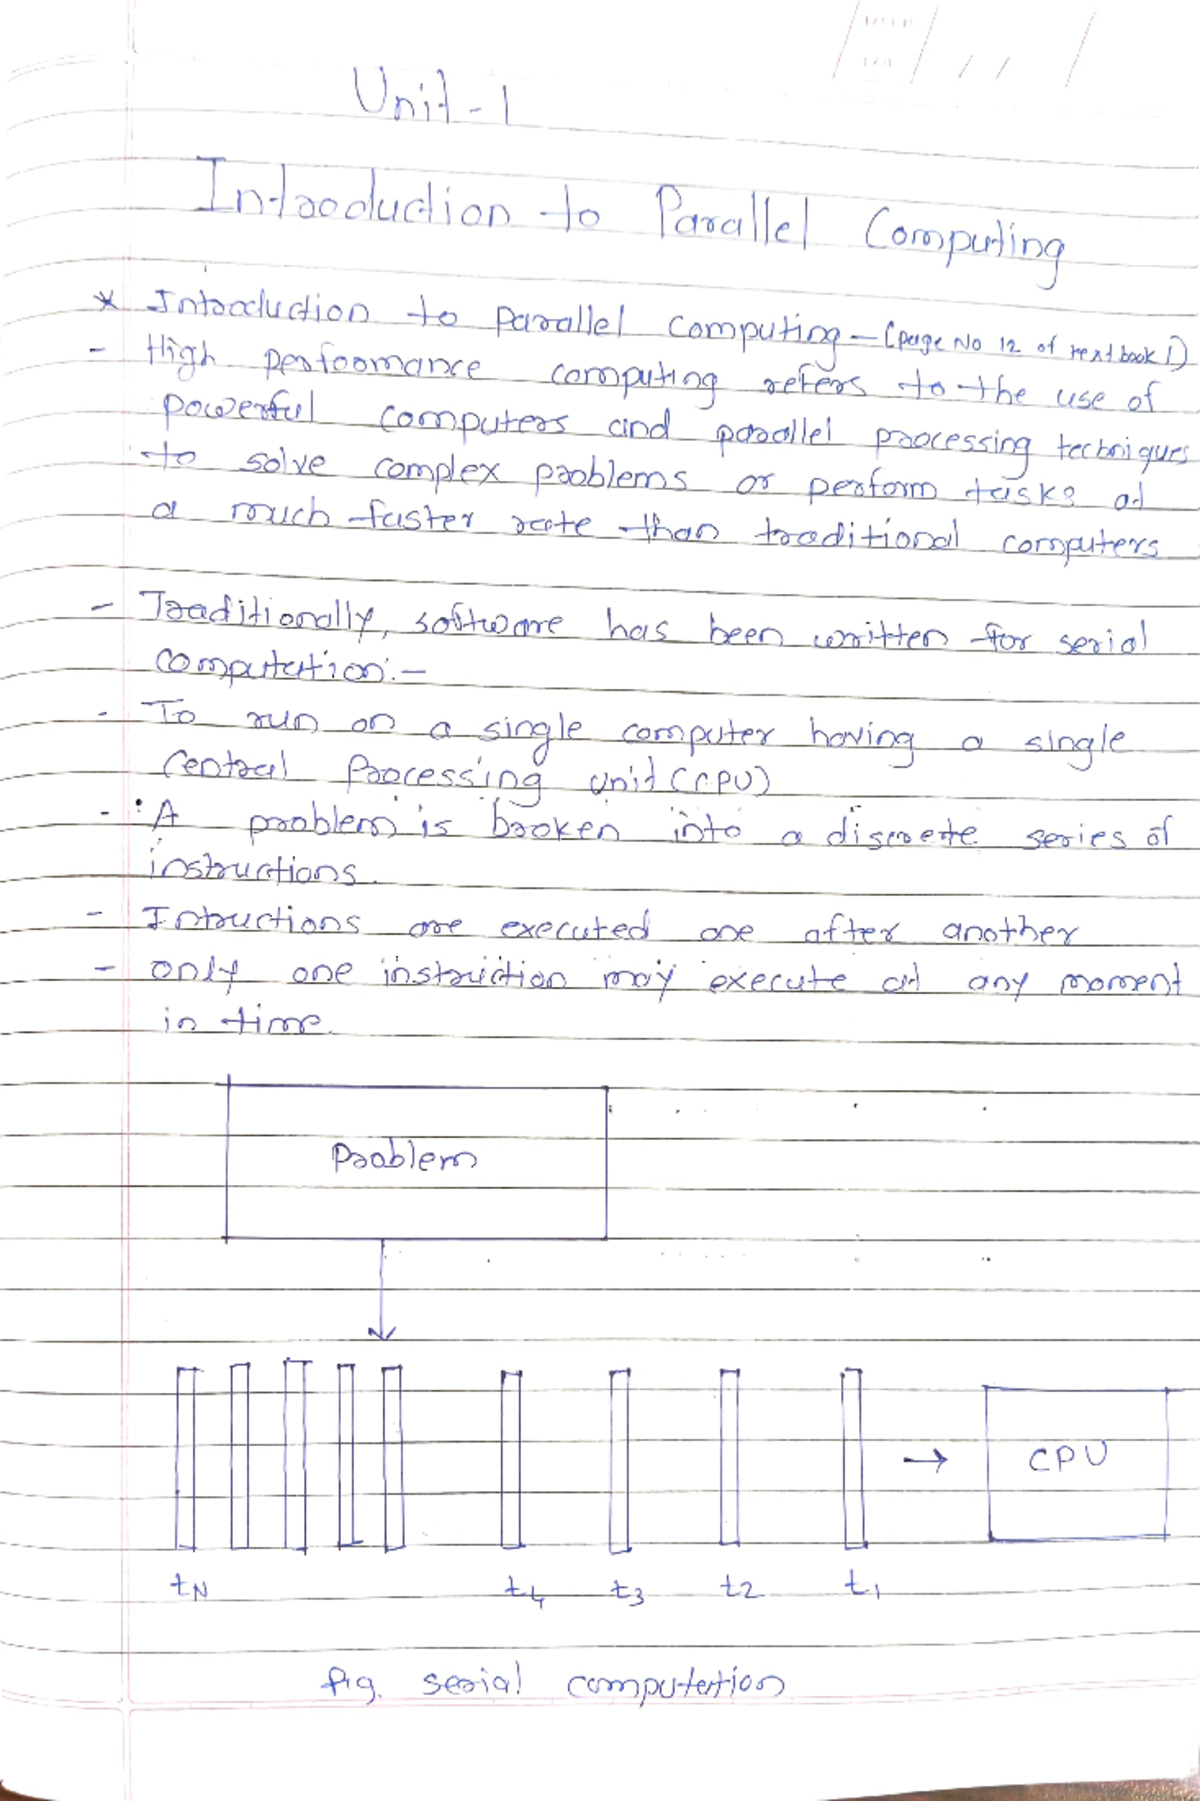 Unit-1
Introduction to Parallel Computing
* Introduction to Parallel Computing - (page No 12 of text book 1)
- High performance computing refers to the use of
powerful computers and parallel processing techniques
to solve complex problems or perform tasks at
a much faster rate than traditional computers
- Traditionally, software has been written for serial
computation:-
- To run on a single computer having a single
Central Processing Unit (CPU)
- A problem is broken into a discrete series of
instructions.
- Intructions are executed one after another
- only one instruction may execute at any moment
in time.
Problem
CPU
tN t4 t3 t2 t1
fig. serial computation